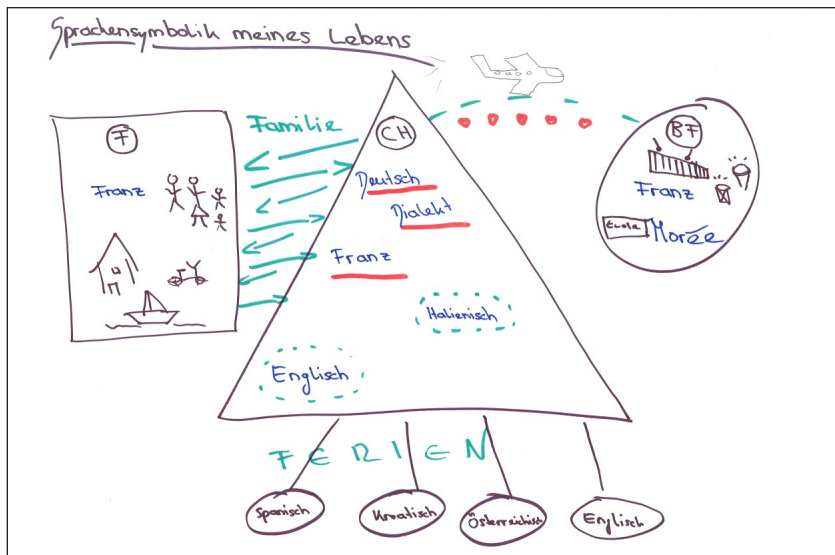 Sprachensymbolik meines Lebens
F
Franz
Familie
CH
Deutsch
Dialekt
Franz
Italienisch
Englisch
BF
Franz
École
Morée
FERIEN
Spanisch
Kroatisch
Österreichisch
Englisch